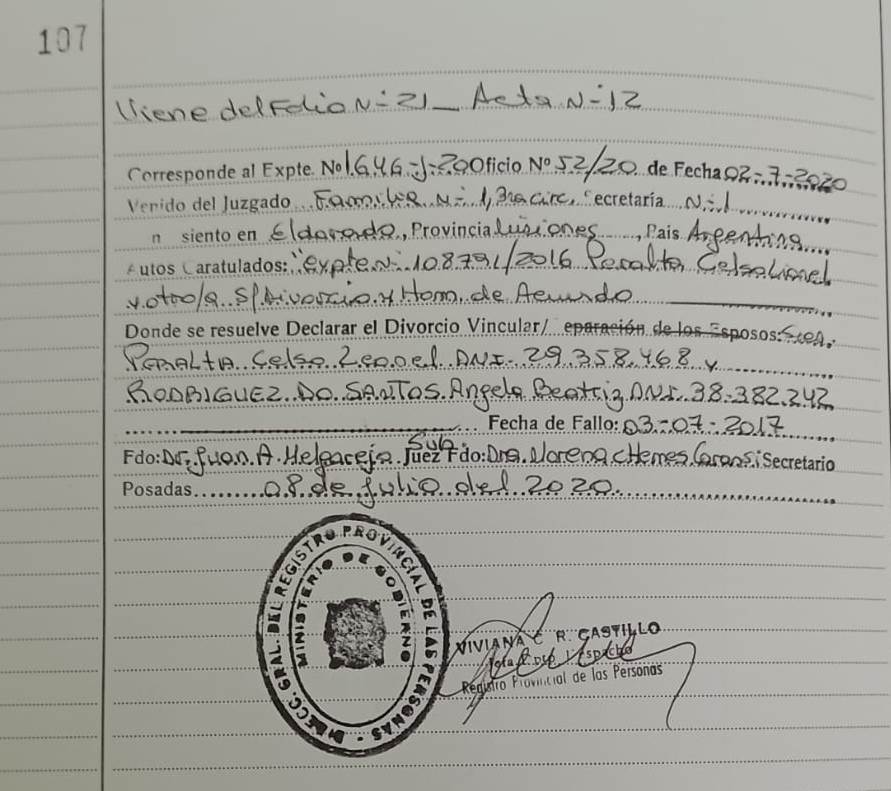 107
Viene del Folio N-21_ Acta N-12
Corresponde al Expte. Nº1.646-J-20 Oficio Nº 52/20 de Fecha 02-7-2020
Venido del Juzgado Familia N-1, 3ra circ, Secretaría N-1
n siento en Eldorado, Provincia Misiones, Pais Argentina
Autos Caratulados: "expte N- 108791/2016 Peralta Celso Lionel
y otro/a S/Divorcio y Hom. de Acuerdo
Donde se resuelve Declarar el Divorcio Vincular/ eparación de los Esposos: Sres.
PERALTA Celso Leonel DNI- 29.358.468 y
RODRIGUEZ DO SANTOS Angela Beatriz DNI. 38.382.242
Fecha de Fallo: 03-07-2017
Fdo: Dr. Juan A. Juez Fdo: Dra. Secretario
Sub
Posadas 08 de Julio del 2020.
DIRECC. GRAL. DEL REGISTRO PROVINCIAL DE LAS PERSONAS
MINISTERIO DE GOBIERNO
VIVIANA C R. CASTILLO
Despacho
Registro Provincial de las Personas